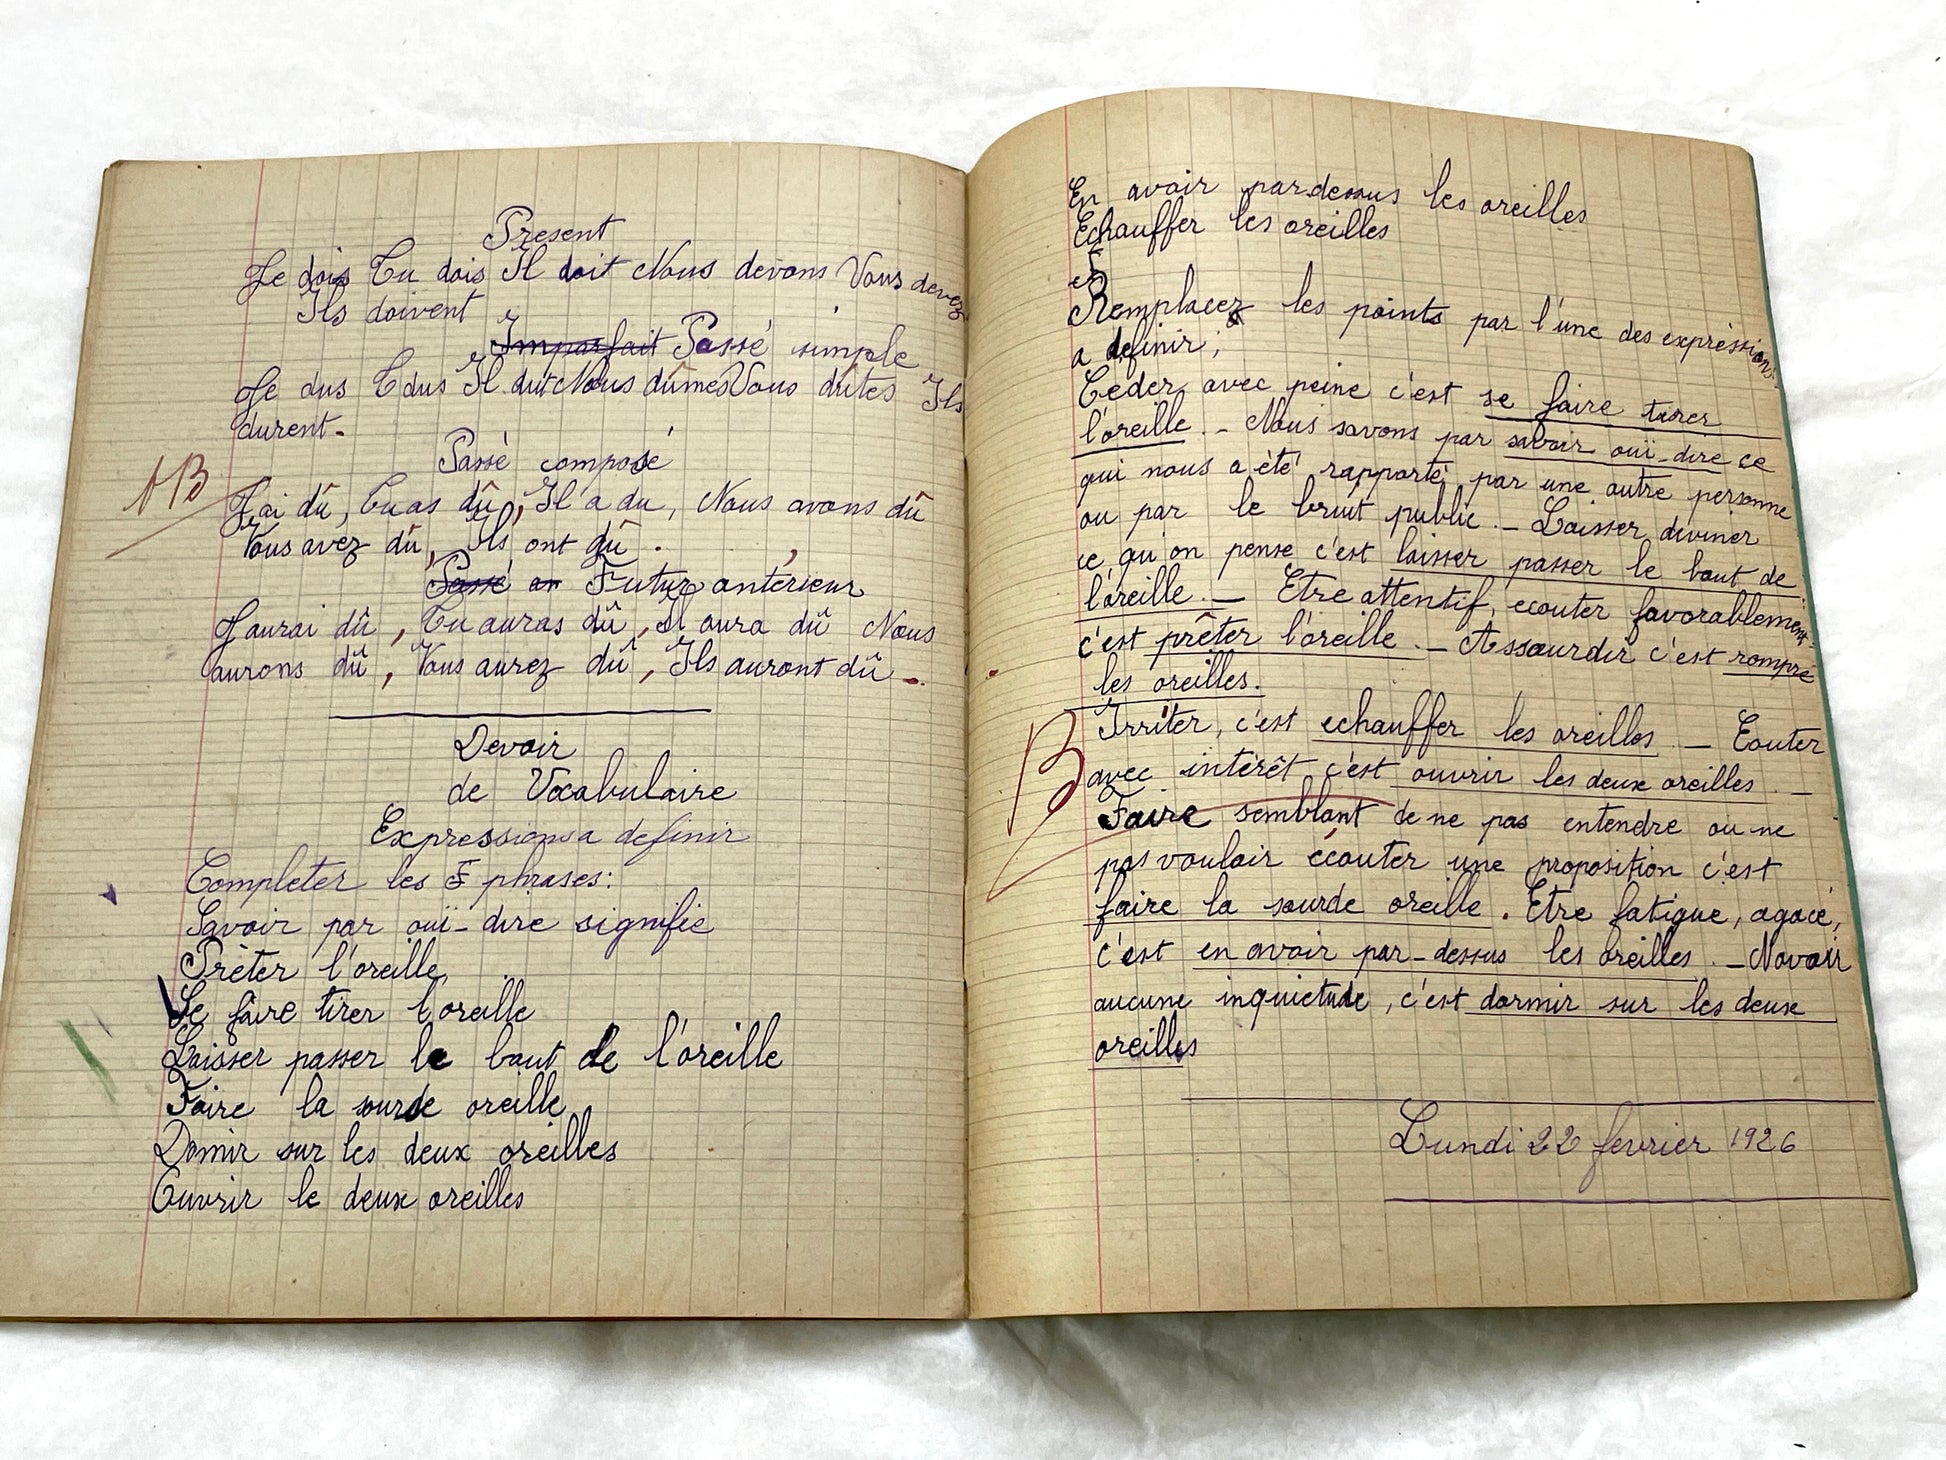 Présent
Je dois Tu dois Il doit Nous devons Vous devez
Ils doivent
Imparfait Passé simple
Je dus Tu dus Il dut Nous dûmes Vous dûtes Ils
durent.
Passé composé
TB
J'ai dû, Tu as dû, Il a du, Nous avons dû
Vous avez dû, Ils ont dû.
Passé an Futur antérieur
J'aurai dû, Tu auras dû, Il aura dû Nous
aurons dû, Vous aurez dû, Ils auront dû.
Devoir
de Vocabulaire
Expressions a definir
Completer les F phrases:
Savoir par ouï-dire signifie
Prêter l'oreille,
Se faire tirer l'oreille
Laisser passer le bout de l'oreille
Faire la sourde oreille
Domir sur les deux oreilles
Ouvrir le deux oreilles
En avoir par dessus les oreilles
Echauffer les oreilles
Remplacez les points par l'une des expressions
a definir;
Ceder avec peine c'est se faire tirer
l'oreille. - Nous savons par savoir ouï-dire ce
qui nous a été rapporté par une autre personne
ou par le bruit public. - Laisser deviner
ce qu'on pense c'est laisser passer le bout de
l'oreille. - Etre attentif, ecouter favorablement
c'est prêter l'oreille. - Assourdir c'est rompre
les oreilles.
Irriter, c'est echauffer les oreilles. - Ecouter
B
avec intérêt c'est ouvrir les deux oreilles. -
Faire semblant de ne pas entendre ou ne
pas vouloir écouter une proposition c'est
faire la sourde oreille. Etre fatigue, agacé,
c'est en avoir par-dessus les oreilles. - N'avoir
aucune inquietude, c'est dormir sur les deux
oreilles
Lundi 22 fevrier 1926